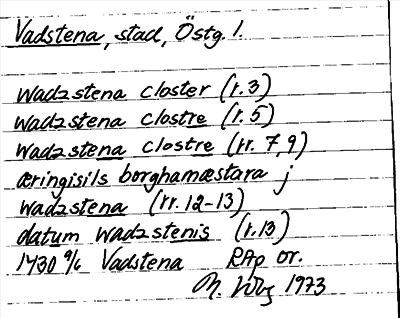 Vadstena, stad, Östg. l.
wadzstena closter (r.3)
wadzstena clostre (r.5)
wadzstena clostre (rr. 7,9)
æringisils borghamæstara j
wadzstena (rr. 12-13)
datum wadzstenis (r.13)
1430 9/6 Vadstena RAp or.
1973